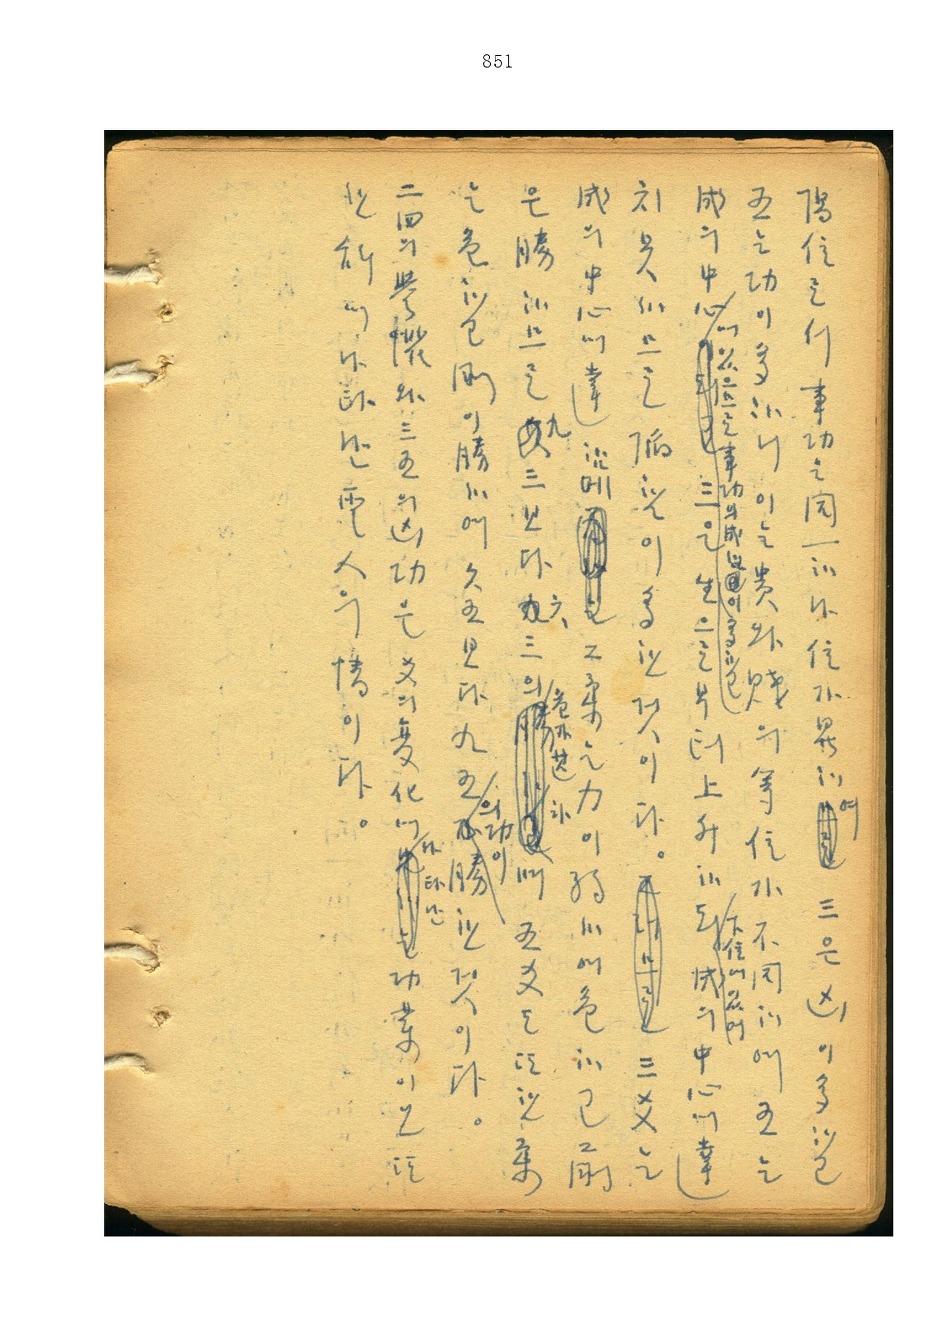 851
陽位로써 事功는 同一하나 位가 異하여 三은 凶이 多하고
五는 功이 多하니 이는 貴와 賤의 等位가 不同하며 五는
成의 中心에 있으므로 事功의 成이 多하고 三은 生으로부터 上升하되 下位에 있어 成의 中心에 達
치 못하므로 陷한 이 多한 것이다。 三爻는
成의 中心에 達하며 는 柔는 力이 弱하며 危하고 剛
은 勝하므로 九三보다 六三의 危가 甚하며 五爻도 또한 柔
는 危하고 剛이 勝하며 六五보다 九五의 功이 勝한 것이다。
二四의 譽懼와 三五의 凶功은 爻의 變化에 나타난 功業이오 또
한 辭에 나타난 聖人의 情이다。